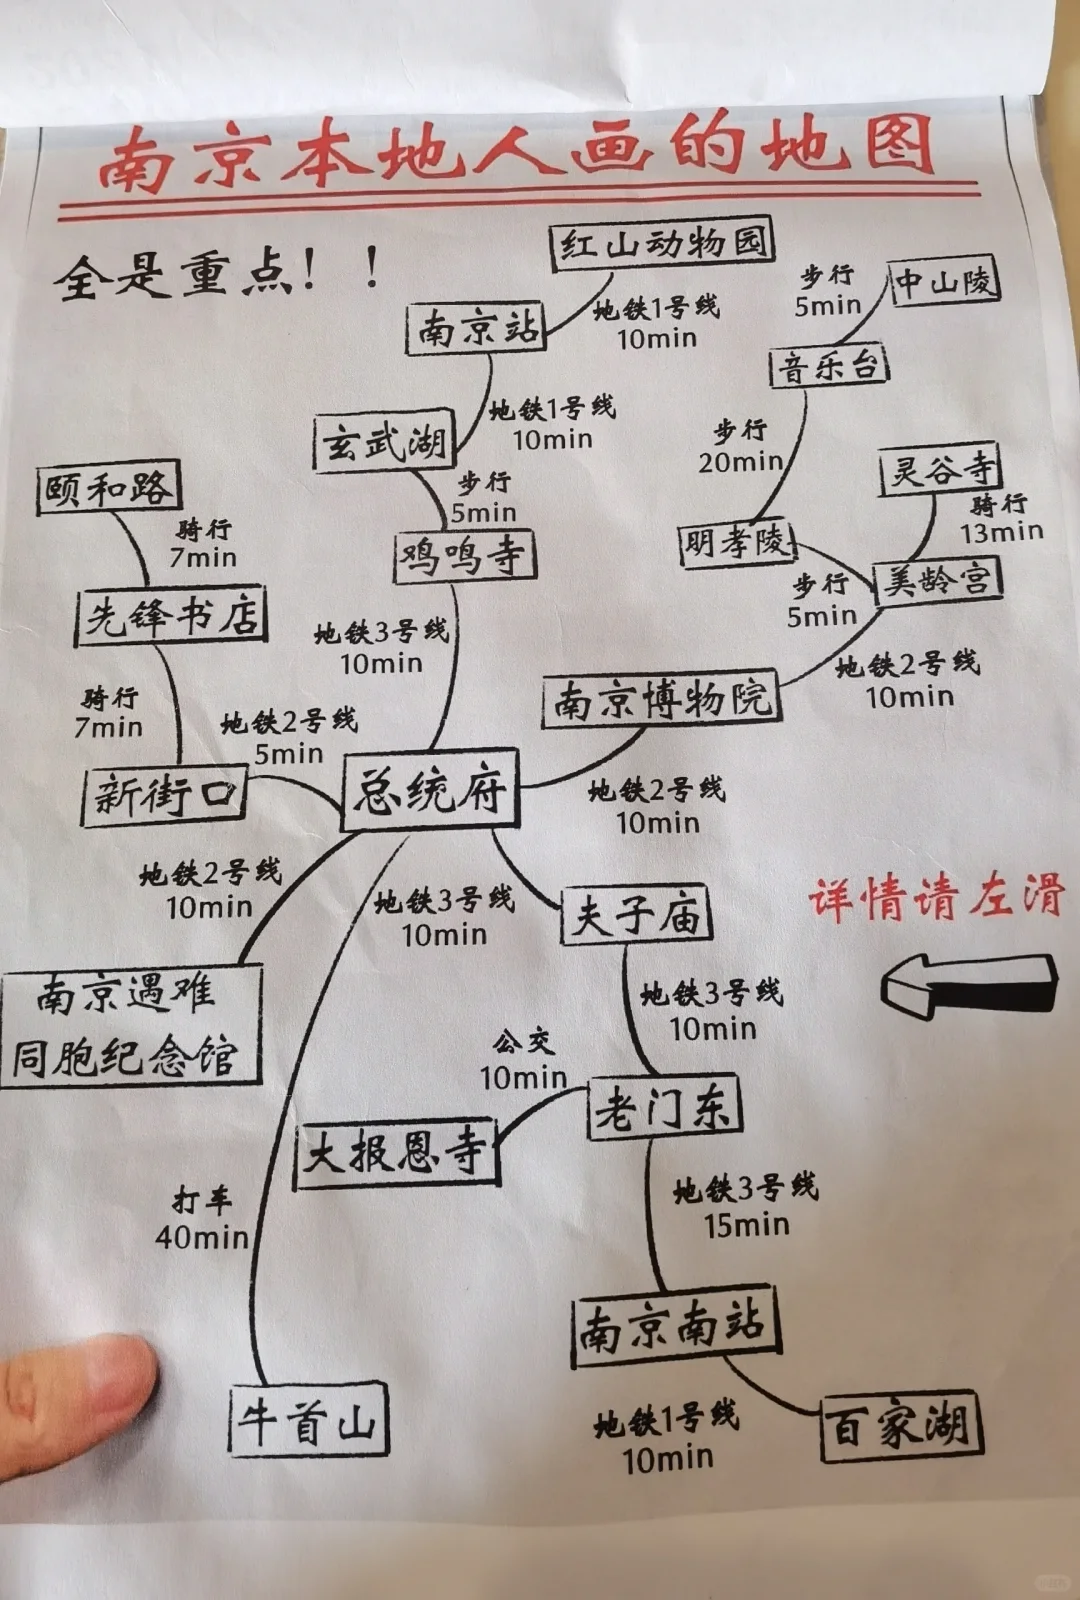 南京本地人画的地图
全是重点！！
红山动物园
步行
5min
中山陵
地铁1号线
10min
南京站
音乐台
地铁1号线
10min
玄武湖
步行
20min
灵谷寺
颐和路
步行
5min
骑行
13min
骑行
7min
鸡鸣寺
明孝陵
美龄宫
步行
5min
先锋书店
地铁3号线
10min
地铁2号线
10min
南京博物院
骑行
7min
地铁2号线
5min
新街口
总统府
地铁2号线
10min
地铁2号线
10min
地铁3号线
10min
夫子庙
详情请左滑
南京遇难
同胞纪念馆
地铁3号线
10min
公交
10min
老门东
大报恩寺
打车
40min
地铁3号线
15min
南京南站
牛首山
地铁1号线
10min
百家湖